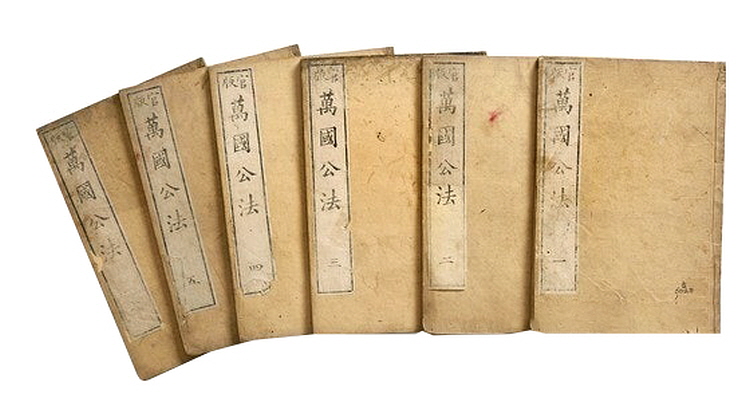 官版
萬國公法
一
官版
萬國公法
二
官版
萬國公法
三
官版
萬國公法
四
官版
萬國公法
五
官版
萬國公法